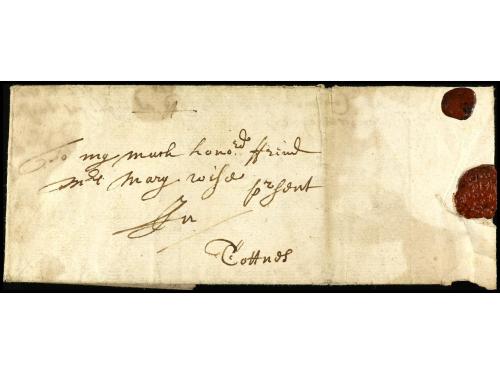 To my much hono:rd ffreind
mrs Mary wise
prsent
In
Tottnes